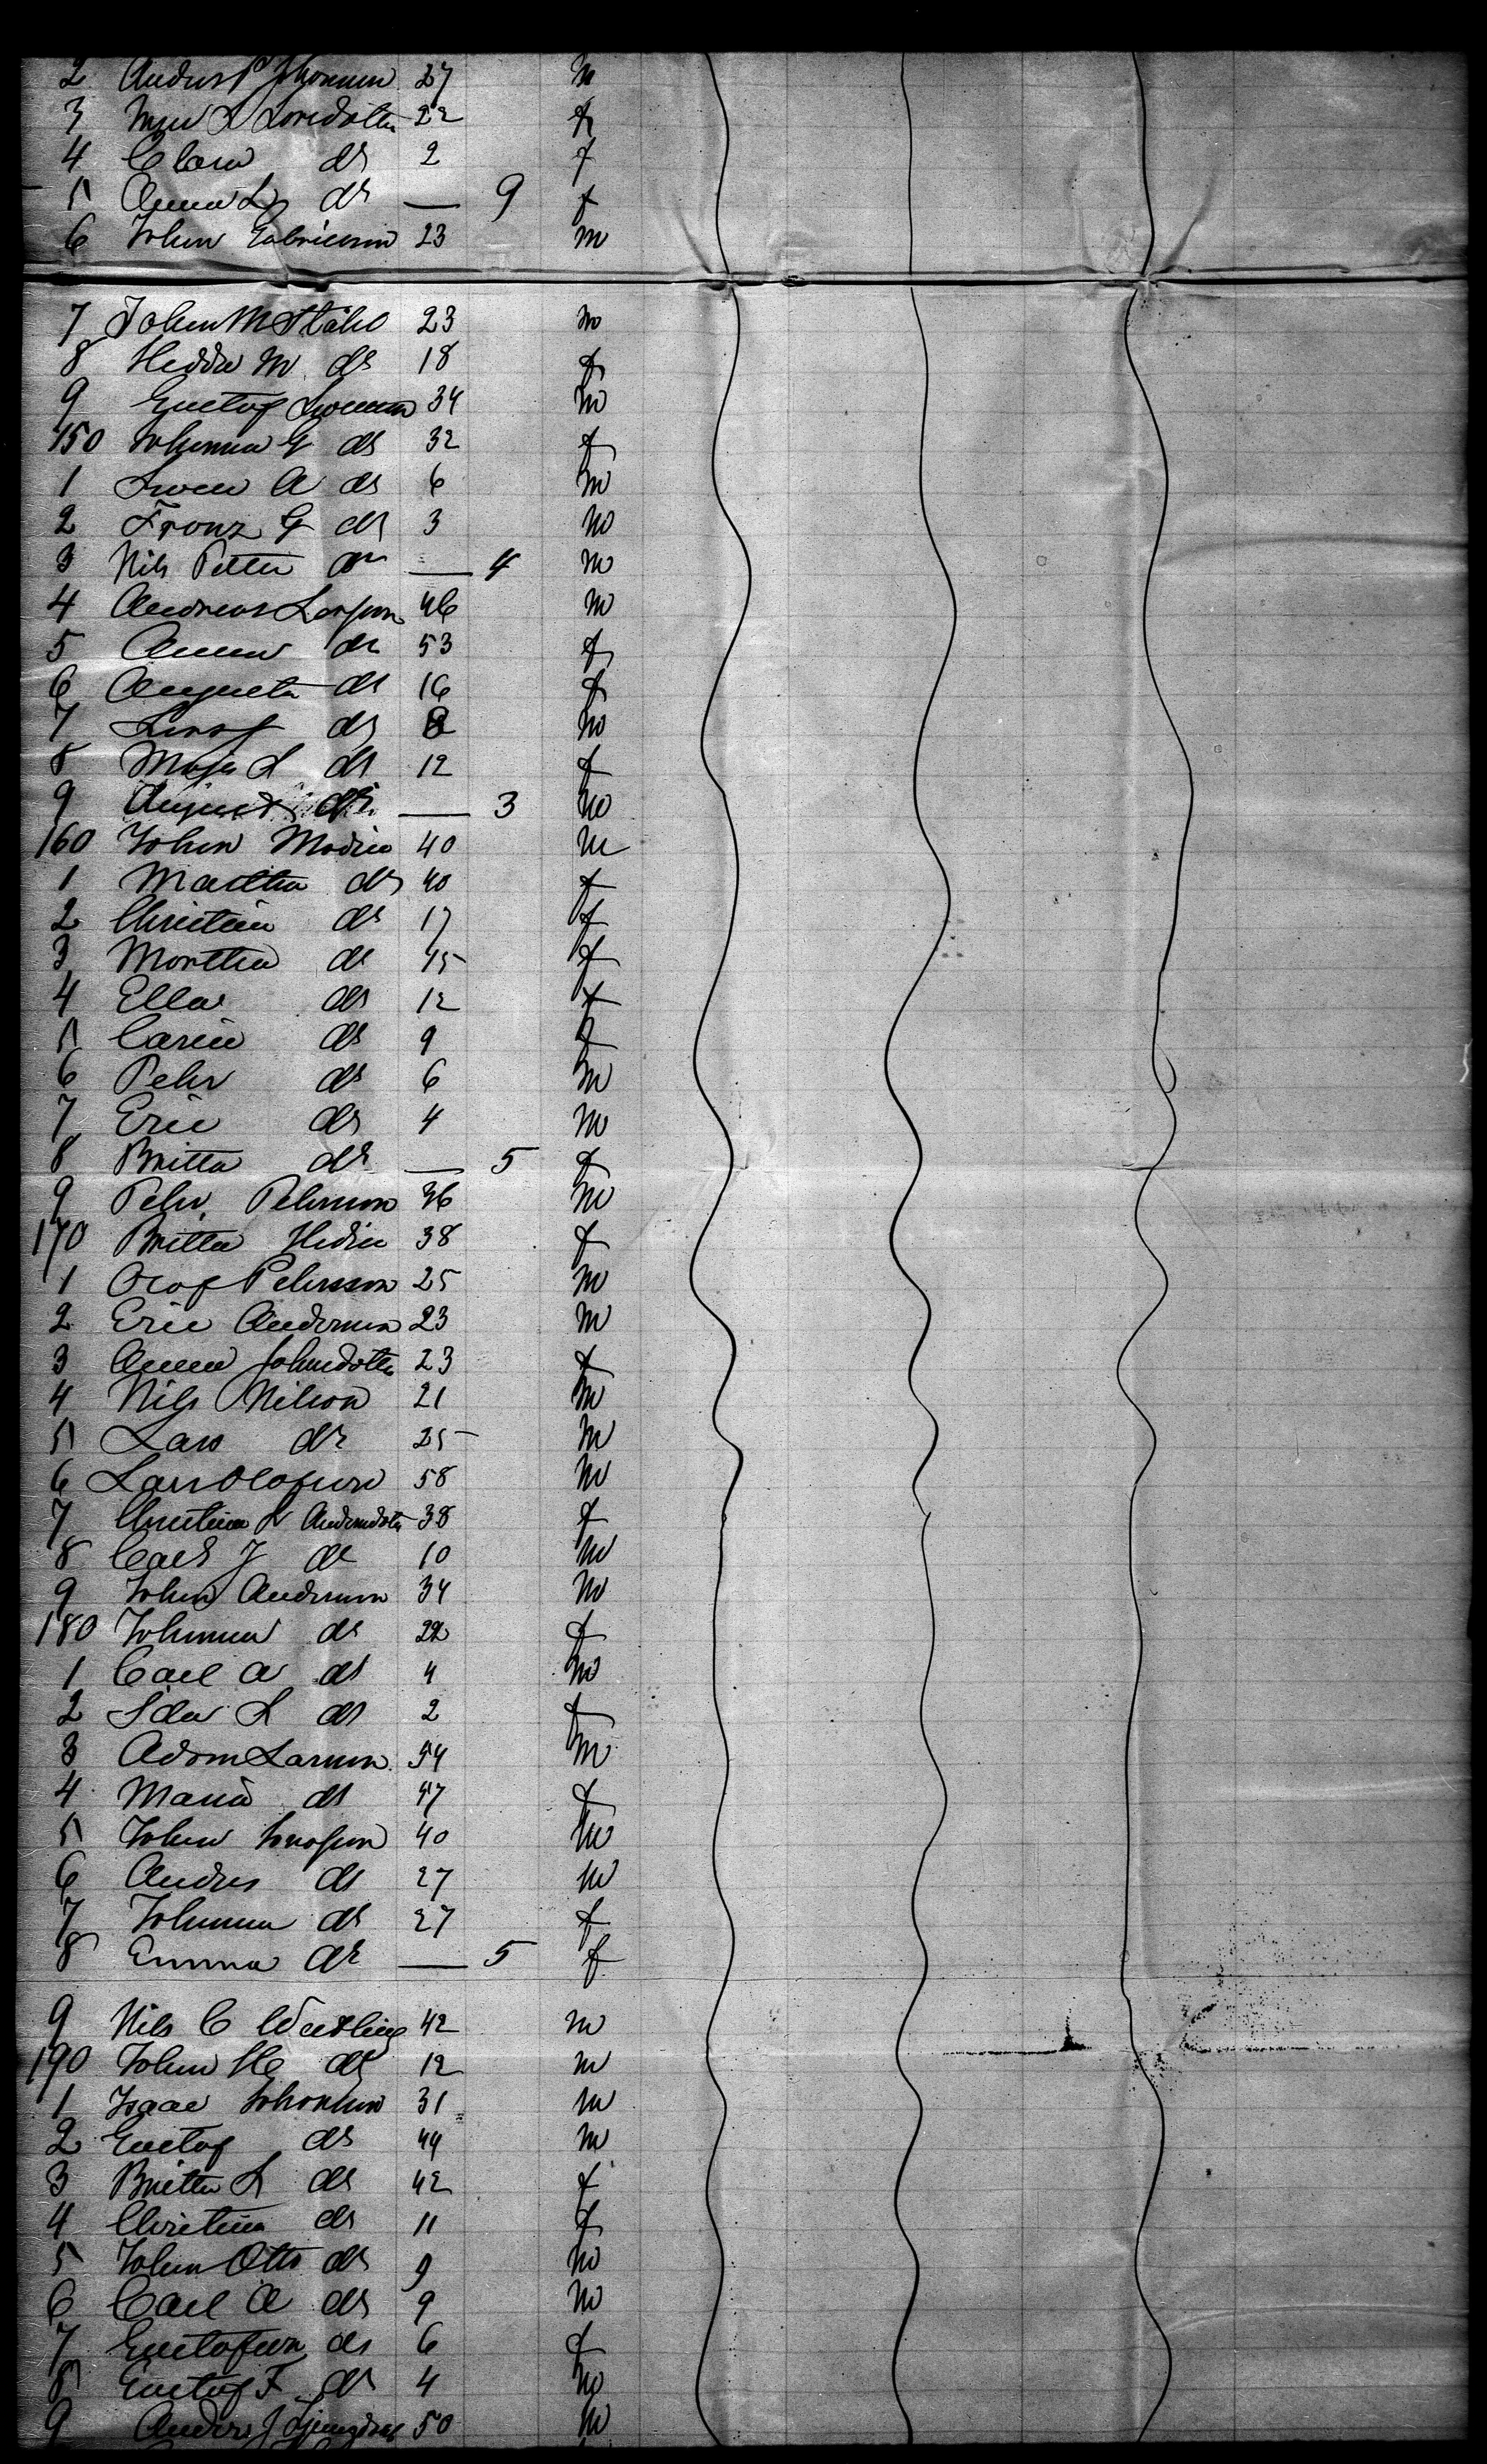 2 Anders P Johansson 27 m
3 L Larsdotter 22 f
4 Clara do 2 f
5 Anna L do — 9 f
6 Johan Gabrielsson 23 m
7 Johan M Ståhl 23 m
8 Hedda M do 18 f
9 Gustaf Swensson 34 m
150 Johanna G do 32 f
1 Swen A do 6 m
2 Franz G do 3 m
3 Nils Petter do — 4 m
4 Andreas Larsson 46 m
5 Anna do 53 f
6 Augusta do 16 f
7 do m
8 Maja L do 12 f
9 August do — 3 m
160 Johan Modin 40 m
1 Martha do 40 f
2 Christina do 17 f
3 Martha do 15 f
4 Ella do 12 f
5 Carin do 9 f
6 Pehr do 6 m
7 Eric do 4 m
8 Britta do — 5 f
9 Pehr Pehrsson 36 m
170 Britta Hedin 38 f
1 Olof Pehrsson 25 m
2 Eric Andersson 23 m
3 Anna Johnsdotter 23 f
4 Nils Nilson 21 m
5 Lars do 25 m
6 Lars Olofsson 58 m
7 Christina L Andersdotter 38 f
8 Carl J do 10 m
9 Johan Andersson 34 m
180 Johanna do 22 f
1 Carl A do 4 m
2 Ida L do 2 f
3 Adam Larsson 54 m
4 Maria do 47 f
5 Johan Jonasson 40 m
6 Anders do 27 m
7 Johanna do 27 f
8 Emma do — 5 f
9 Nils C 42 m
190 Johan do 12 m
1 Isaac Johansson 31 m
2 Gustaf do 44 m
3 Britta L do 42 f
4 Christina do 11 f
5 Johan Otto do 9 m
6 Carl A do 9 m
7 do 6 f
8 Gustaf F do 4 m
9 Anders J Ljungdahl 50 m